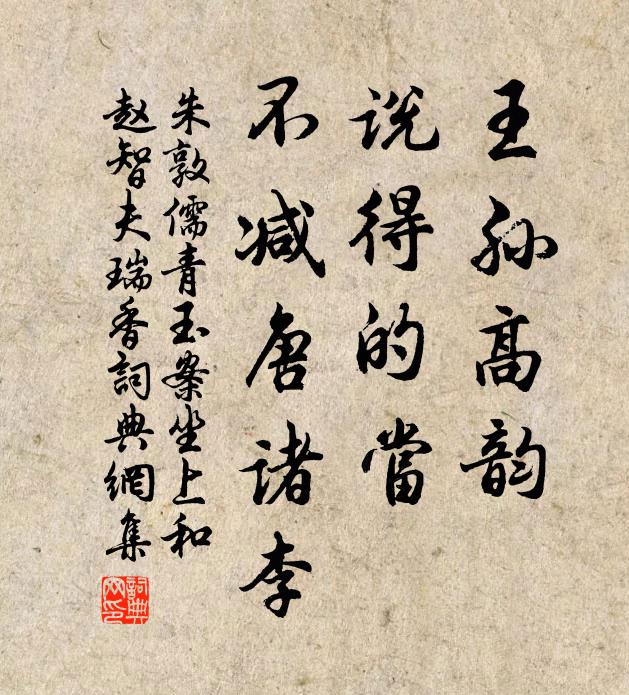 王孙高韵
説得的當
不减唐诸李
朱敦儒青玉案坐上和
赵智夫瑞香詞典網集
詞典网印